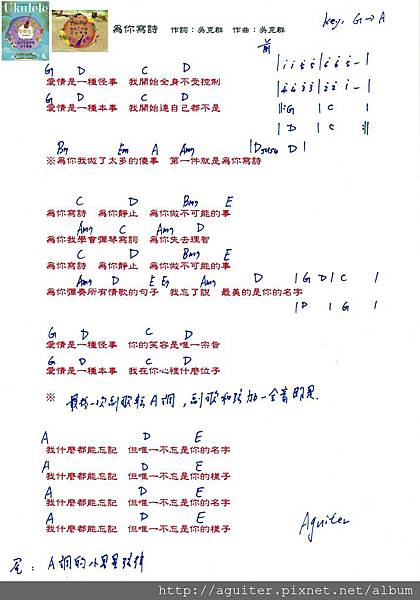 Ukulele
為你寫詩 作詞：吳克群 作曲：吳克群 key: G→A
前
| i i 5 5 | i i 5 - |
| 4 6 3 3 | 2 2 i - |
G D C D
愛情是一種怪事 我開始全身不受控制
||: G | C |
G D C D
愛情是一種本事 我開始連自己都不是
| D | C :||
Bm Em A Am7 | Dsus4 D |
※為你我做了太多的傻事 第一件就是為你寫詩
C D Bm7 E
為你寫詩 為你靜止 為你做不可能的事
Am7 C Am7 D
為你我學會彈琴寫詞 為你失去理智
C D Bm7 E
為你寫詩 為你靜止 為你做不可能的事
Am7 D E Em Am7 D | G D | C |
為你彈奏所有情歌的句子 我忘了說 最美的是你的名字
| D | G |
G D C D
愛情是一種怪事 你的笑容是唯一宗旨
G D C D
愛情是一種本事 我在你心裡什麼位子
※ 最後一次副歌轉A調，副歌和弦加一全音即是.
A D E
我什麼都能忘記 但唯一不忘是你的名字
A D E
我什麼都能忘記 但唯一不忘是你的樣子
A D E
我什麼都能忘記 但唯一不忘是你的名字
A D E
我什麼都能忘記 但唯一不忘是你的樣子
Aguiter
尾：A調的小星星旋律
http://aguiter.pixnet.net/album